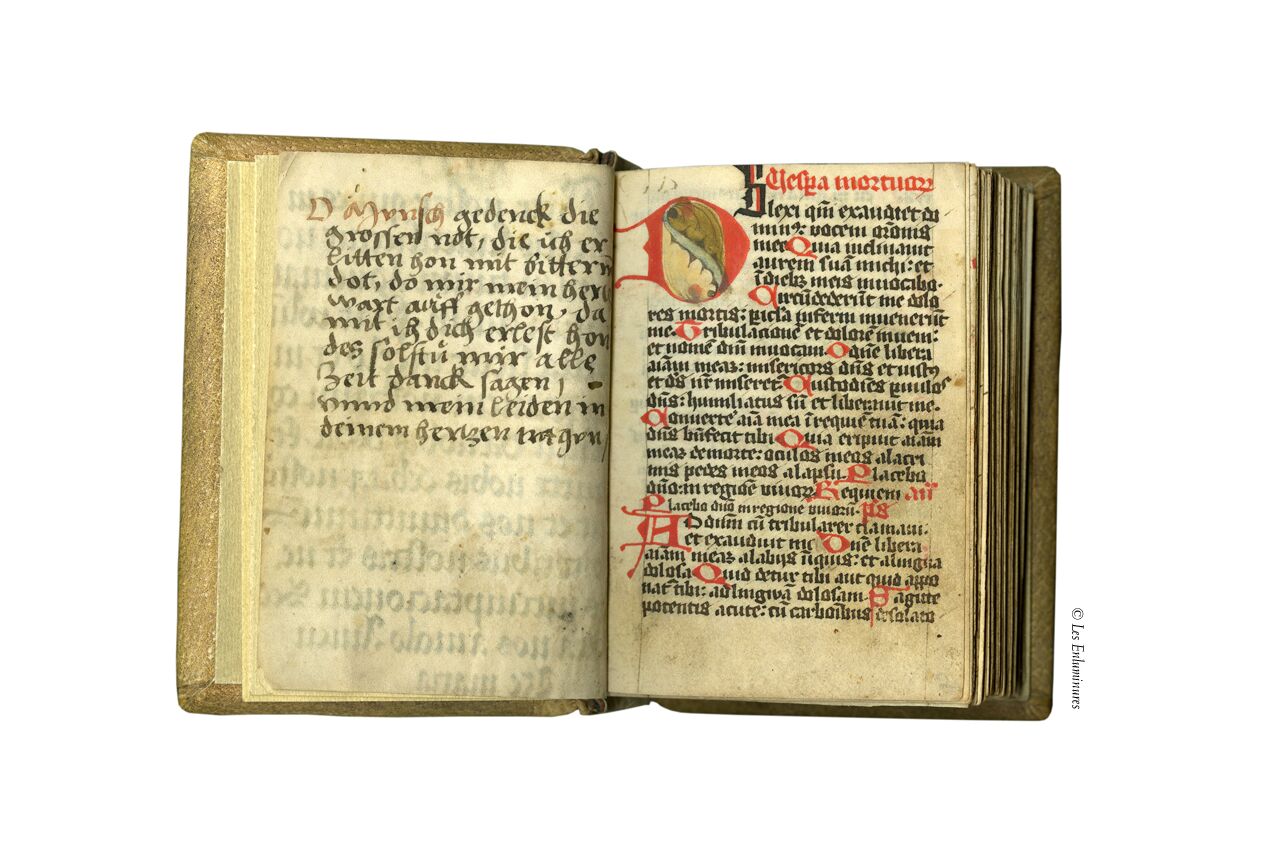 O Mensch gedenck die
grossen not, die ich er
litten hon mit bitterm
dot, do mir mein hertz
wart auff gethon, da
mit ich dich erlest hon
des soltu mir alle
Zeit danck sagen,
vnnd mein leiden in
deinem hertzen tragen
Uespa mortuor
Dilexi qm̄ exaudiet do
minꝰ: vocem oronis
mee Quia inclinauit
aurem suā michi: et
ī diebꝫ meis inuocabo.
Circūdederūt me dolo
res mortis: picła inferni inuenerūt
me. Tribulacionē et dolorē inueni:
et nomē dn̄i inuocaui. O dn̄e libera
aīam meaꝫ: misericors dn̄s et iustꝰ
et dꝰ nr̄ miseret᷑ Custodiēs ꝑuulos
dn̄s: humiliatus sū et liberauit me.
Conuerte aīā mea ī requiē tuā: quia
dn̄s bn̄fecit tibi Quia eripuit aīam
meaꝫ de morte: oculos meos a lacri
mis pedes meos a lapsu. Placebo
dn̄o: in regiōe viuoꝝ Requiem an̄
Placebo dn̄o in regione viuorū. ps
Ad dn̄m cū tribularer clamaui:
et exaudiuit me Dn̄e libera
aīam meaꝫ a labijs īiquis: et a lingua
dolosa Quid detur tibi aut quid appo
nat᷑ tibi: ad linguā dolosam Sagitte
potentis acute: cū carbonibus desolato
© Les Enluminures